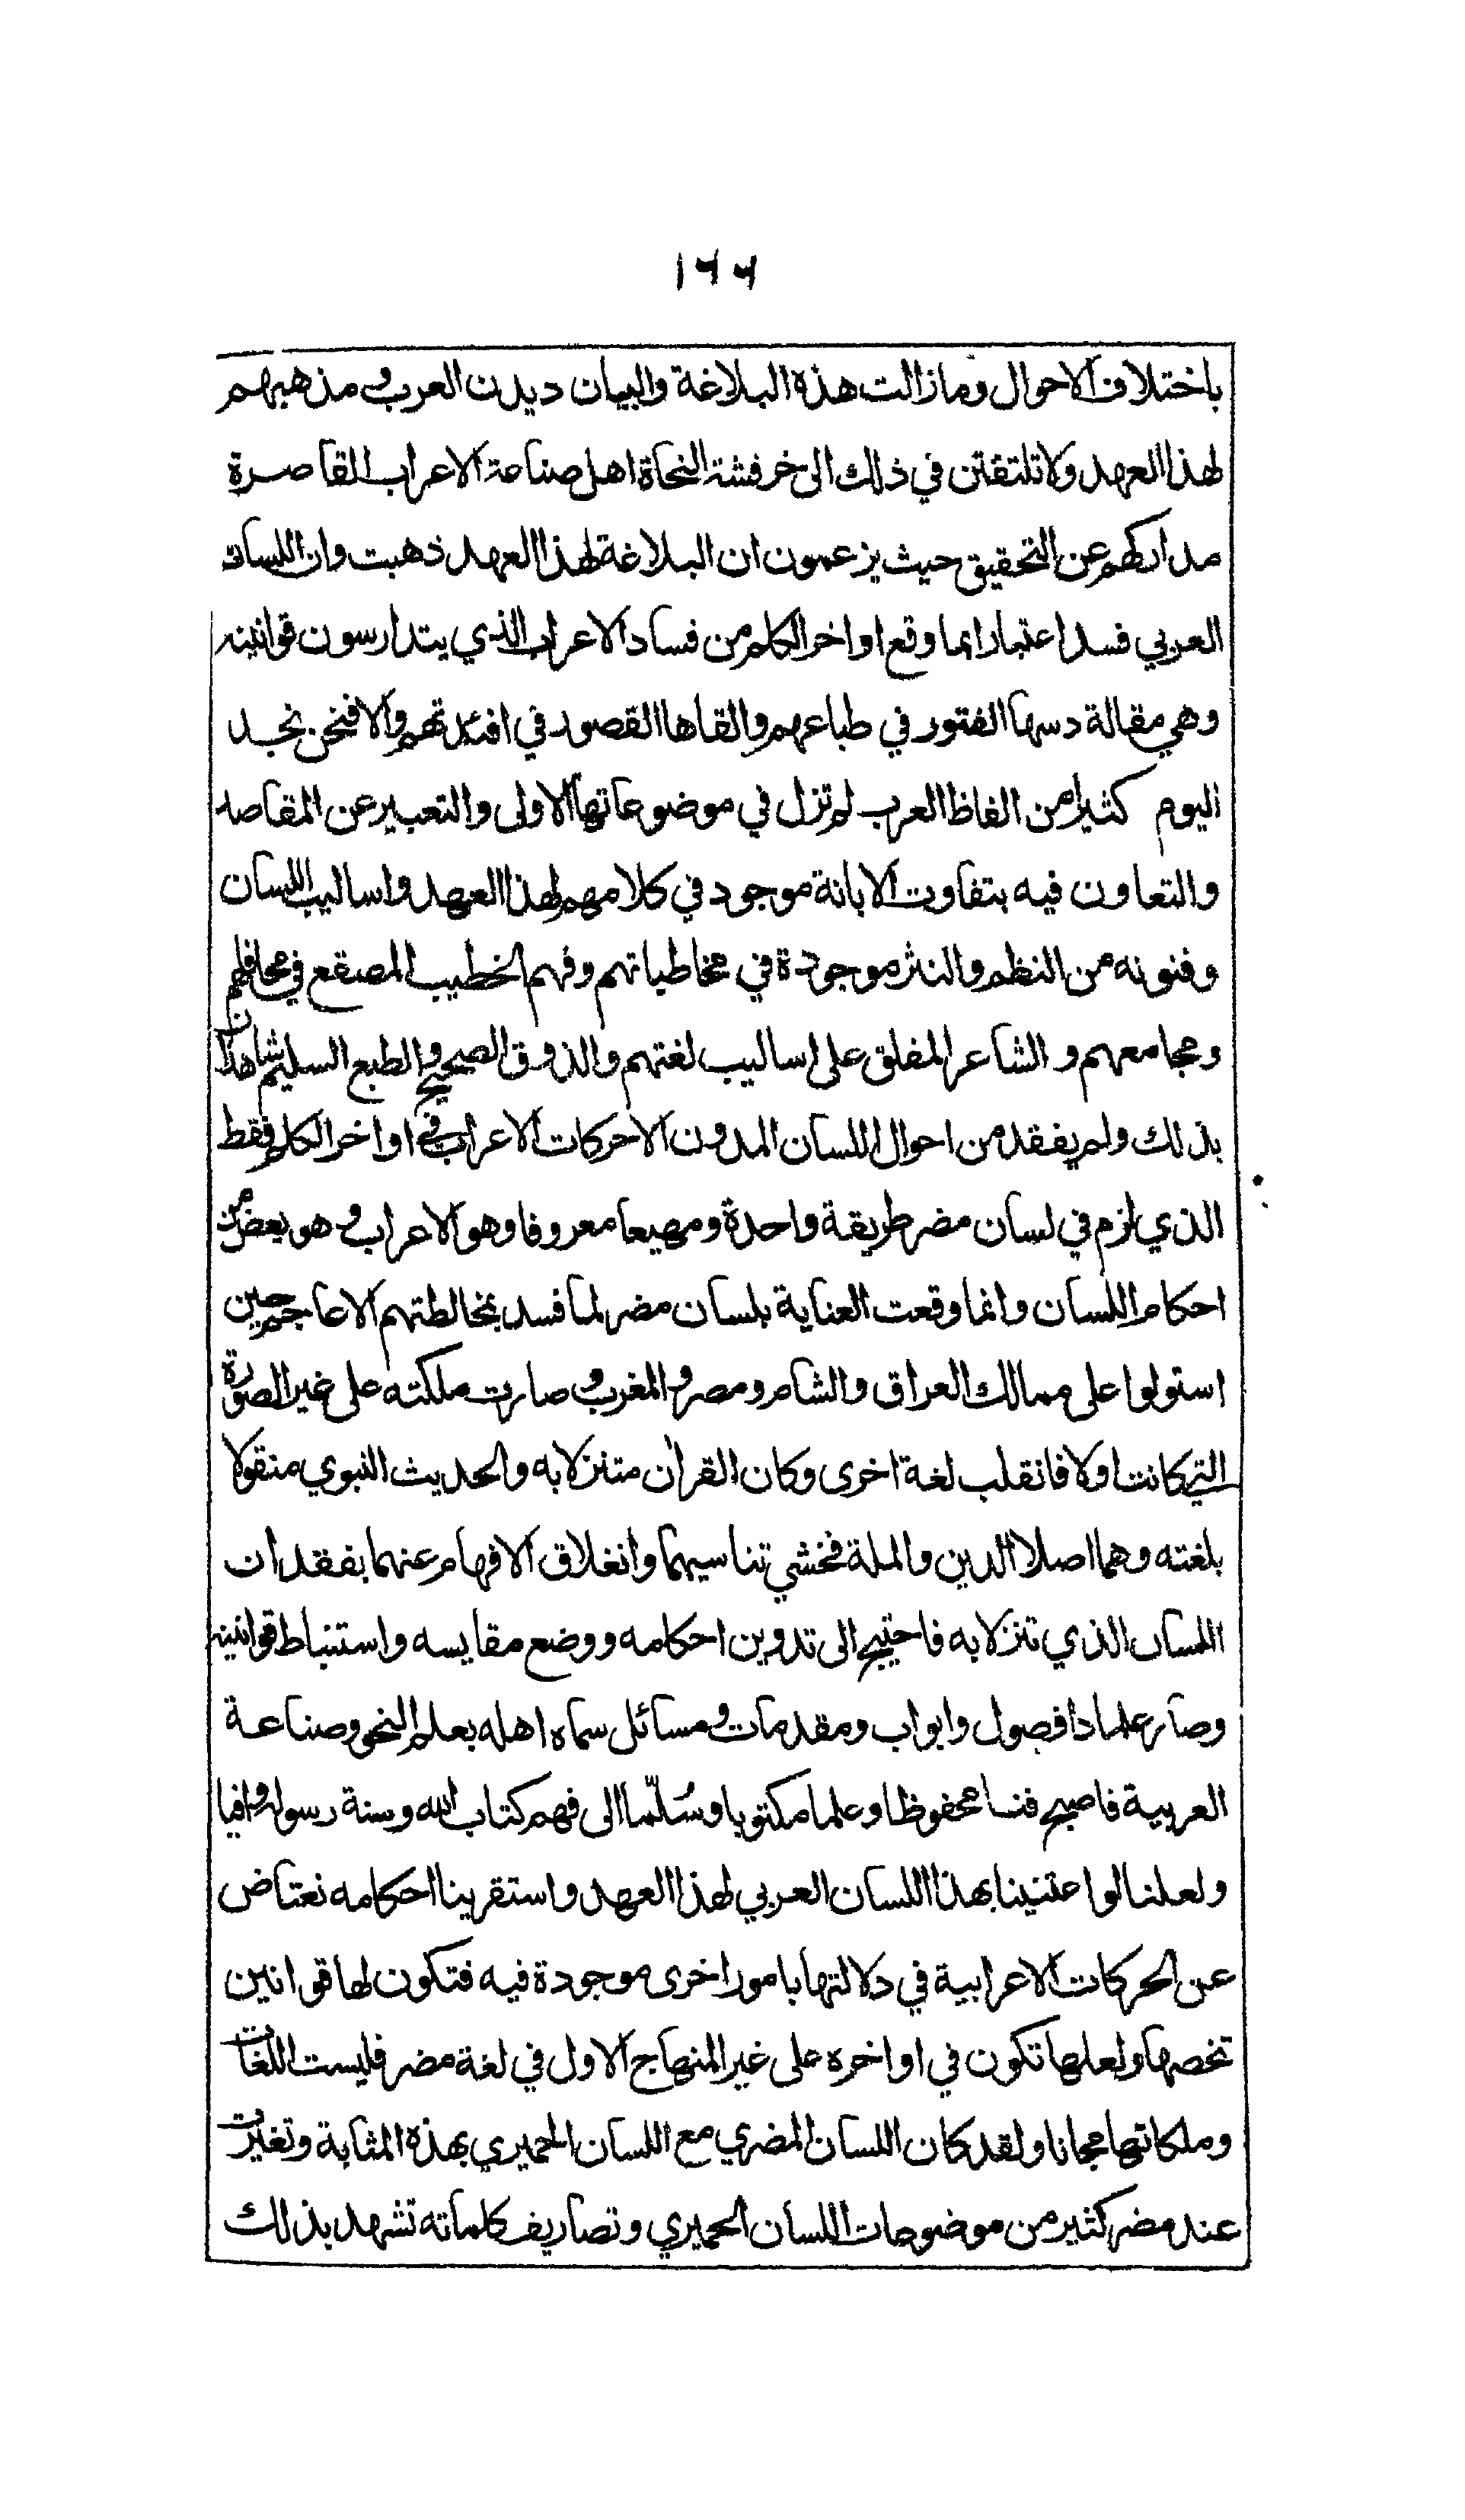 ١٦٦
باختلاف الاحوال وما زالت هذه البلاغة والبيان ديدن العرب ومذهبهم
لهذا العهد ولا تلتفتن في ذلك الى خرفشة النحاة اهل صناعة الاعراب القاصرة
مداركهم عن التحقيق حيث يزعمون ان البلاغة لهذا العهد ذهبت وان اللسان
العربي فسد اعتبارا بما وقع اواخر الكلم من فساد الاعراب الذي يتدارسون قوانينه
وهي مقالة دسها الفتور في طباعهم والقاها القصور في افئدتهم والا فنحن نجد
اليوم كثيرا من الفاظ العرب لم تزل في موضوعاتها الاولى والتعبير عن المقاصد
والتعاون فيه بتفاوت الابانة موجود في كلامهم لهذا العهد واساليب اللسان
وفنونه من النظم والنثر موجودة في مخاطباتهم وفهم الخطيب المصقع في محافلهم
ومجامعهم والشاعر المفلق على اساليب لغتهم والذوق الصحيح والطبع السليم شاهدان
بذلك ولم يفقد من احوال اللسان المدون الا حركات الاعراب في اواخر الكلم فقط
الذي لزم في لسان مضر طريقة واحدة ومهيعا معروفا وهو الاعراب وهو بعض من
احكام اللسان وانما وقعت العناية بلسان مضر لما فسد بمخالطتهم الاعاجم حين
استولوا على ممالك العراق والشام ومصر والمغرب وصارت ملكته على غير الصورة
التي كانت اولا فانقلب لغة اخرى وكان القرأن متنزلا به والحديث النبوي منقولا
بلغته وهما اصلا الدين والملة فخشي تناسيهما وانغلاق الافهام عنهما بفقدان
اللسان الذي تنزلا به فاحتيج الى تدوين احكامه ووضع مقايسه واستنباط قوانينه
وصار علما ذا فصول وابواب ومقدمات ومسائل سماه اهله بعلم النحو وصناعة
العربية فاصبح فنا محفوظا وعلما مكتوبا وسُلّما الى فهم كتاب الله وسنة رسوله وافيا
ولعلنا لو اعتنينا بهذا اللسان العربي لهذا العهد واستقرينا احكامه نعتاض
عن الحركات الاعرابية في دلالتها بامور اخرى موجودة فيه فتكون لها قوانين
تخصها ولعلها تكون في اواخره على غير المنهاج الاول في لغة مضر فليست اللغات
وملكاتها مجانا ولقد كان اللسان المضري مع اللسان الحميري بهذه المثابة وتغيرت
عند مضر كثير من موضوعات اللسان الحميري وتصاريف كلماته تشهد بذلك